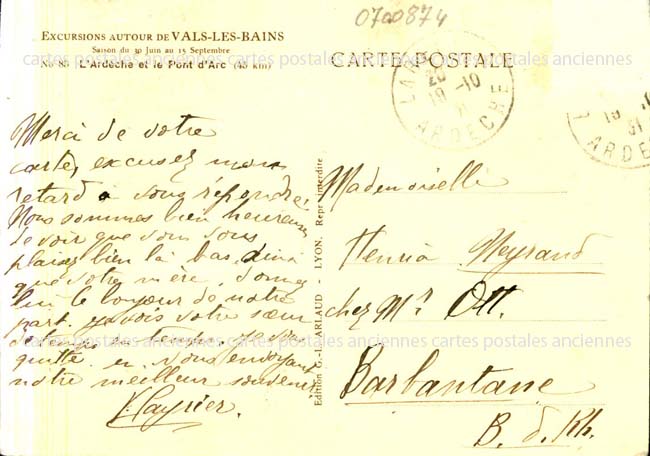 0700874
EXCURSIONS AUTOUR DE VALS-LES-BAINS
Saison du 10 Juin au 15 Septembre
No 85 L'Ardèche et le Pont d'Arc (45 km)
CARTE POSTALE
cartes postales anciennes cartes postales anciennes cartes postales anciennes
19 -10
ARDECHE
19
31
ARDE
Merci de votre
carte, excusez mon
retard à vous répondre.
Nous sommes bien heureux
de voir que vous vous
plaisez bien là bas ainsi
que votre mère. donnez
lui le bonjour de notre
part. je vois votre sœur
de temps en temps. je vous
quitte en vous envoyant
notre meilleur souvenir
Edition C. L. ARLAUD - LYON. Repr. interdite
Mademoiselle
Henria Meyrand
chez Mr Ott.
cartes postales anciennes cartes postales anciennes cartes postales anciennes
Barbantane
B. d. Rh.